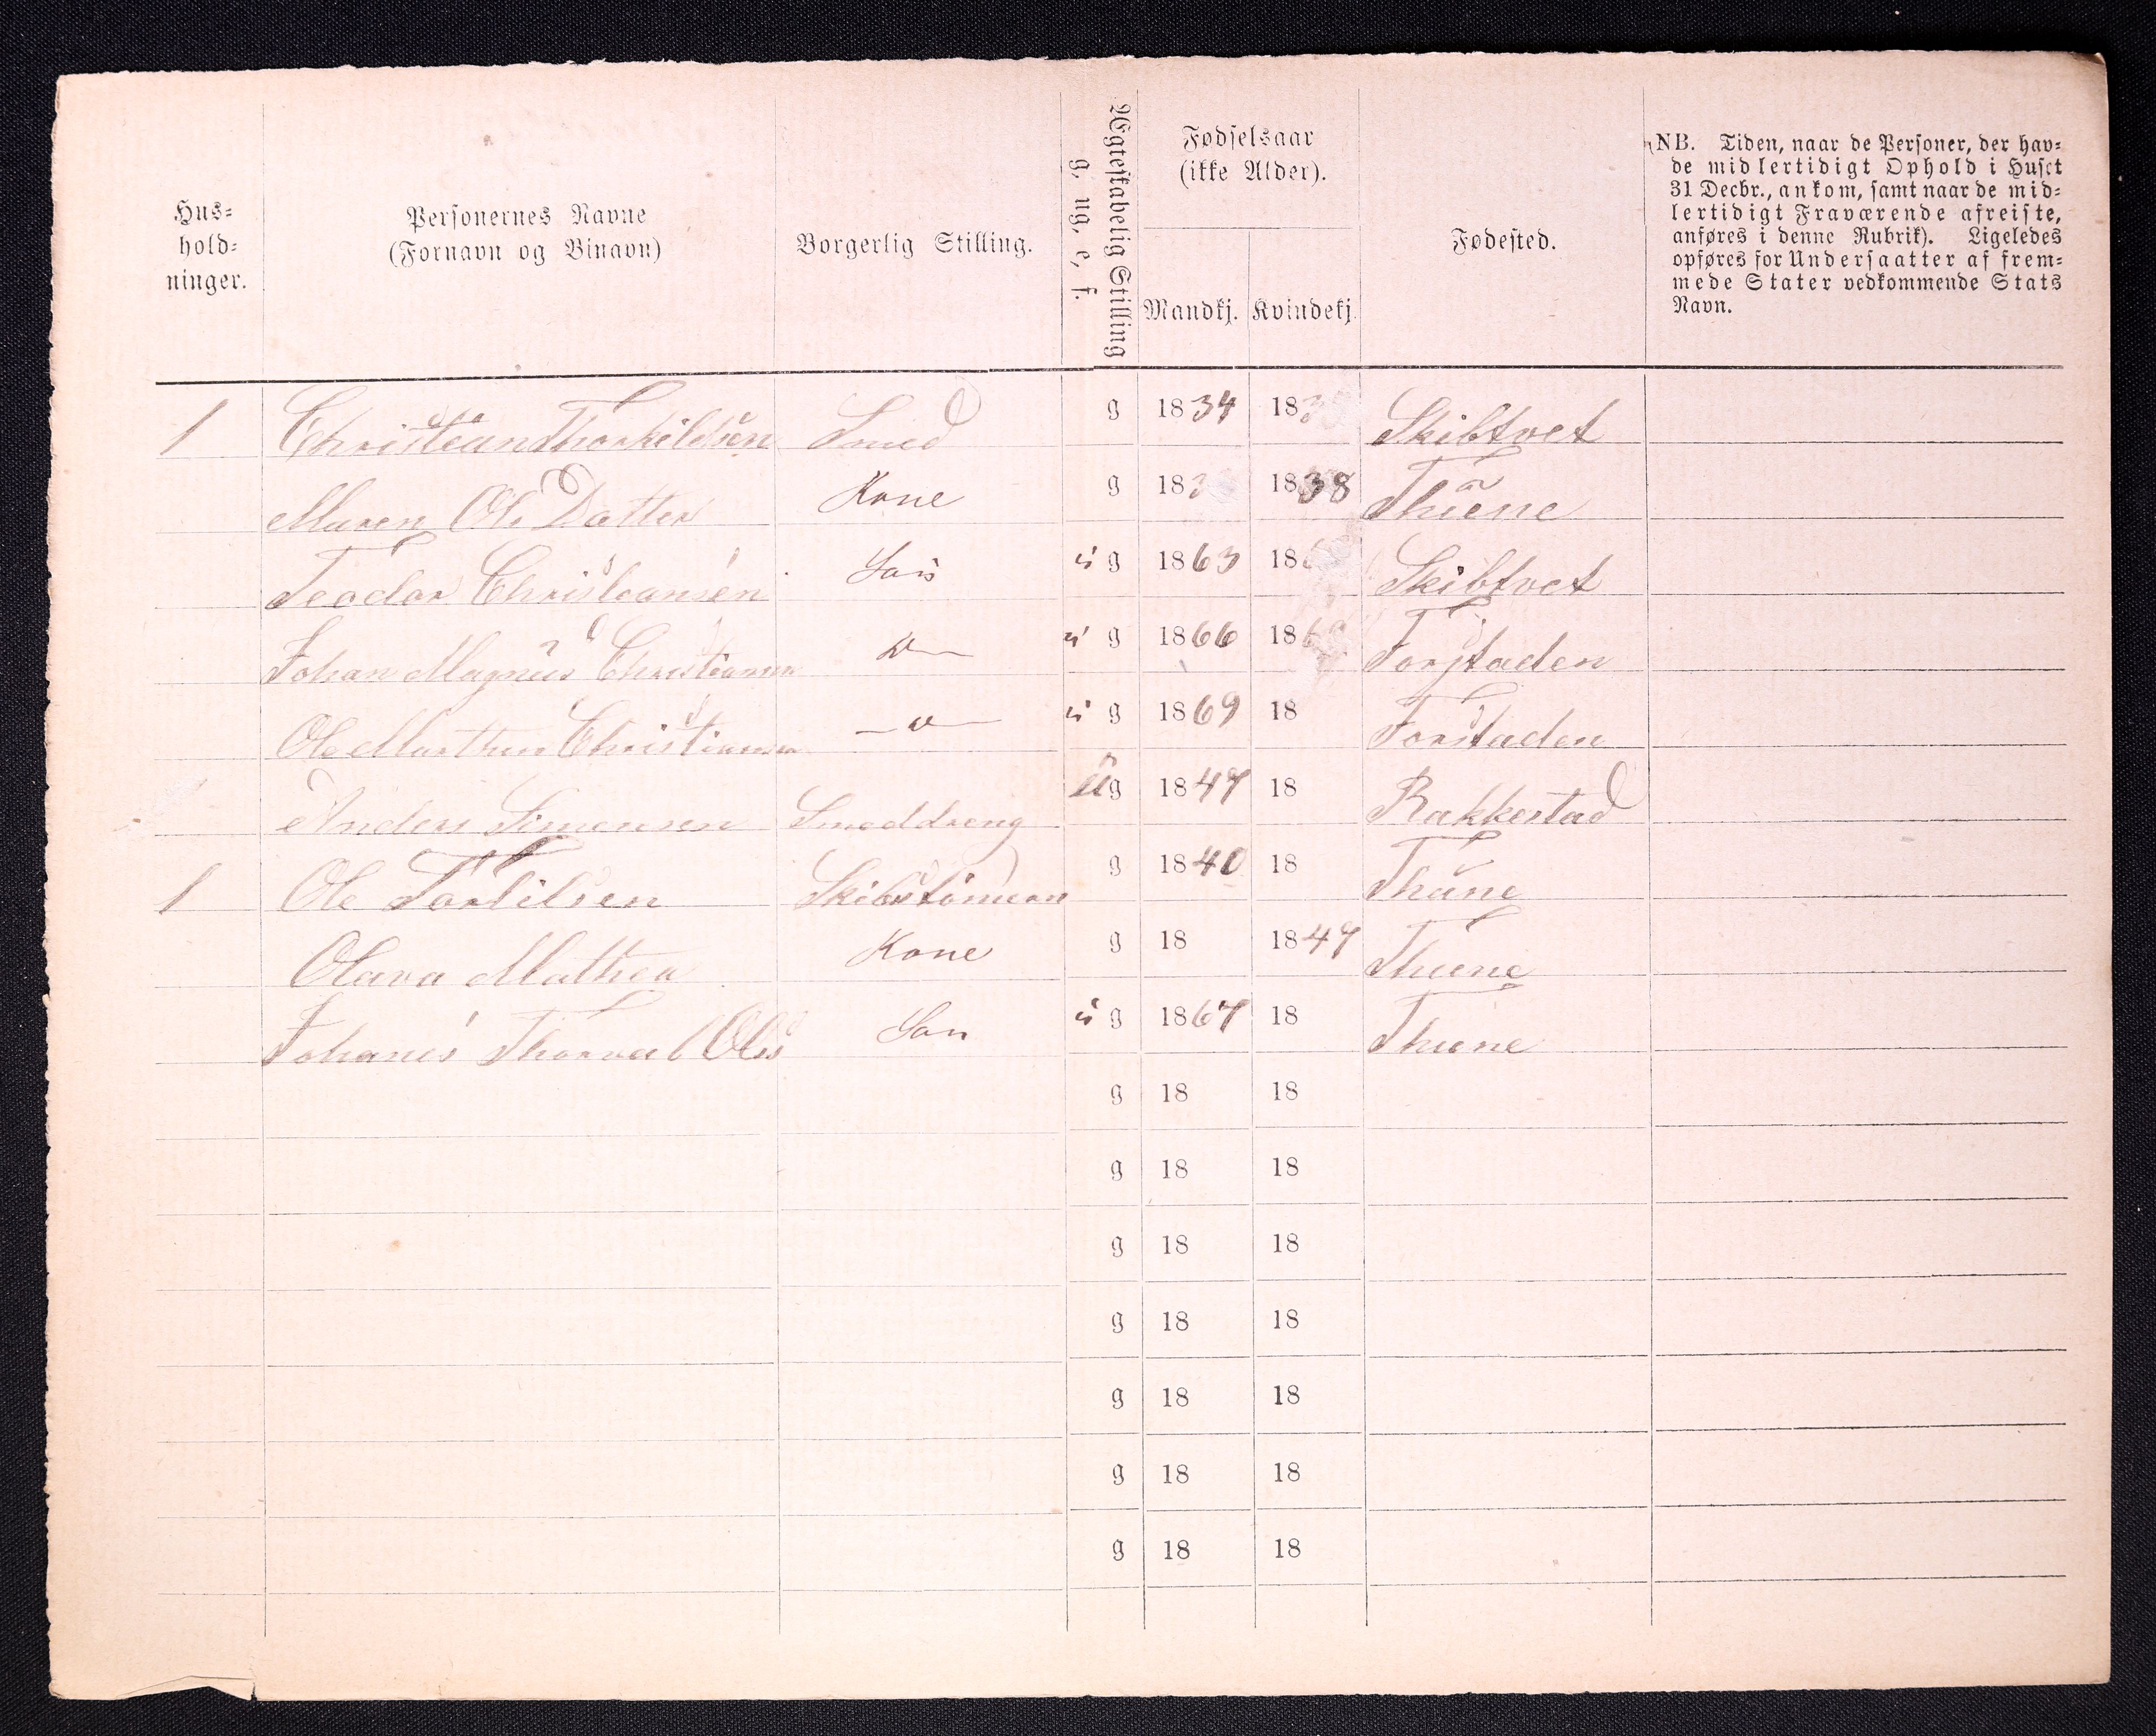 Hus-
hold-
ninger.
Personernes Navne
(Fornavn og Binavn)
Borgerlig Stilling.
Ægteskabelig Stilling
g, ug, e, f.
Fødselsaar
(ikke Alder).
Mandkj. Kvindekj.
Fødested.
NB. Tiden, naar de Personer, der hav-
de midlertidigt Ophold i Huset
31 Decbr., ankom, samt naar de mid-
lertidigt Fraværende afreiste,
anføres i denne Rubrik). Ligeledes
opføres for Undersaatter af frem-
mede Stater vedkommende Stats
Navn.
1 Christean Thorkildsen Smed g 1834 18 Skibtvet
Maren Ole Datter Kone g 18 1838 Thune
Teodor Christeansen Søn ug 1863 18 Skibtvet
Johan Magnus Christiansen Do ug 1866 18 Forstaden
Ole Marthin Christiansen – o – ug 1869 18 Forstaden
Anders Simensen Smeddreng ug 1847 18 Rakkestad
1 Ole Torkilsen Skibstömerm g 1840 18 Thune
Olava Mathea Kone g 18 1847 Thune
Johanes Thorval Ols Son ug 1867 18 Thune
g 18 18
g 18 18
g 18 18
g 18 18
g 18 18
g 18 18
g 18 18